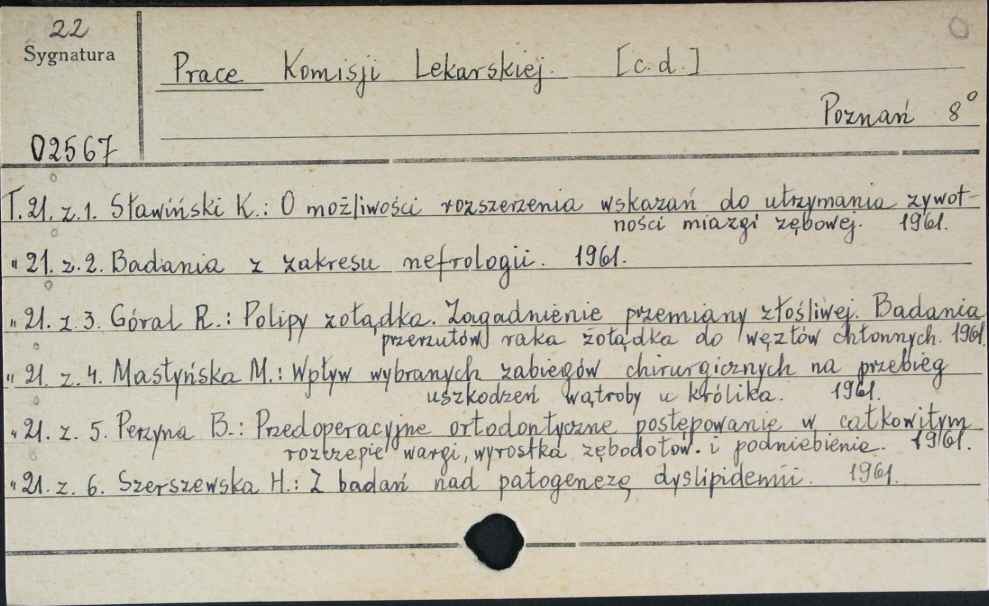 22
Sygnatura
Prace Komisji Lekarskiej. [c.d.]
Poznań 8°
02567
T. 21. z. 1. Sławiński K.: O możliwości rozszerzenia wskazań do utrzymania żywot-
ności miazgi zębowej. 1961.
" 21. z. 2. Badania z zakresu nefrologii. 1961.
" 21. z. 3. Góral R.: Polipy żołądka. Zagadnienie przemiany złośliwej. Badania
przerzutów raka żołądka do węzłów chłonnych. 1961.
" 21. z. 4. Mastyńska M.: Wpływ wybranych zabiegów chirurgicznych na przebieg
uszkodzeń wątroby u królika. 1961.
" 21. z. 5. Perzyna B.: Przedoperacyjne ortodontyczne postępowanie w całkowitym
rozszczepie wargi, wyrostka zębodołow. i podniebienia. 1961.
" 21. z. 6. Szerszewska H.: Z badań nad patogenezą dyslipidemii. 1961.